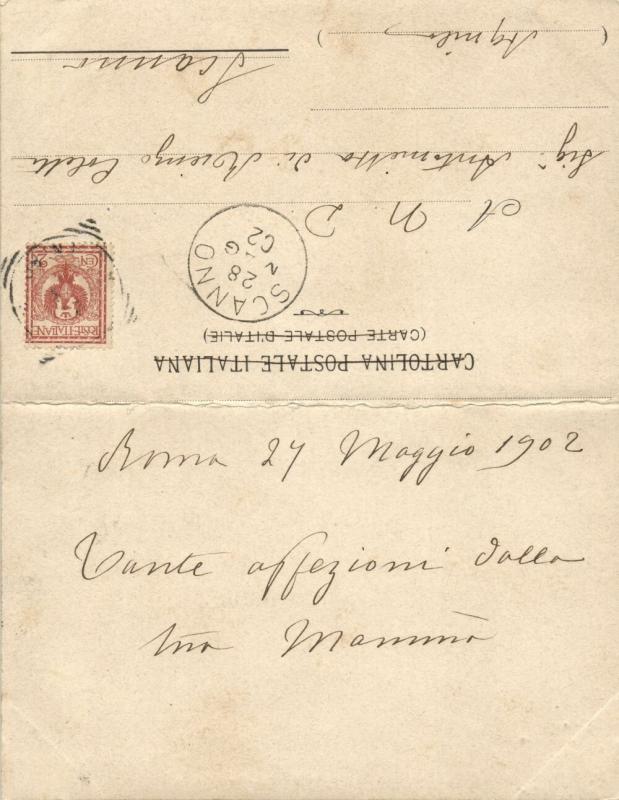 CARTOLINA POSTALE ITALIANA
(CARTE POSTALE D'ITALIE)
POSTE ITALIANE
CENT 2
SCANNO
28
02
A N. D.
Sig.ª Antonietta di Rienzo Colelli
Scanno
(Aquila)
Roma 27 Maggio 1902
Tante affezioni dalla
tua Mamma